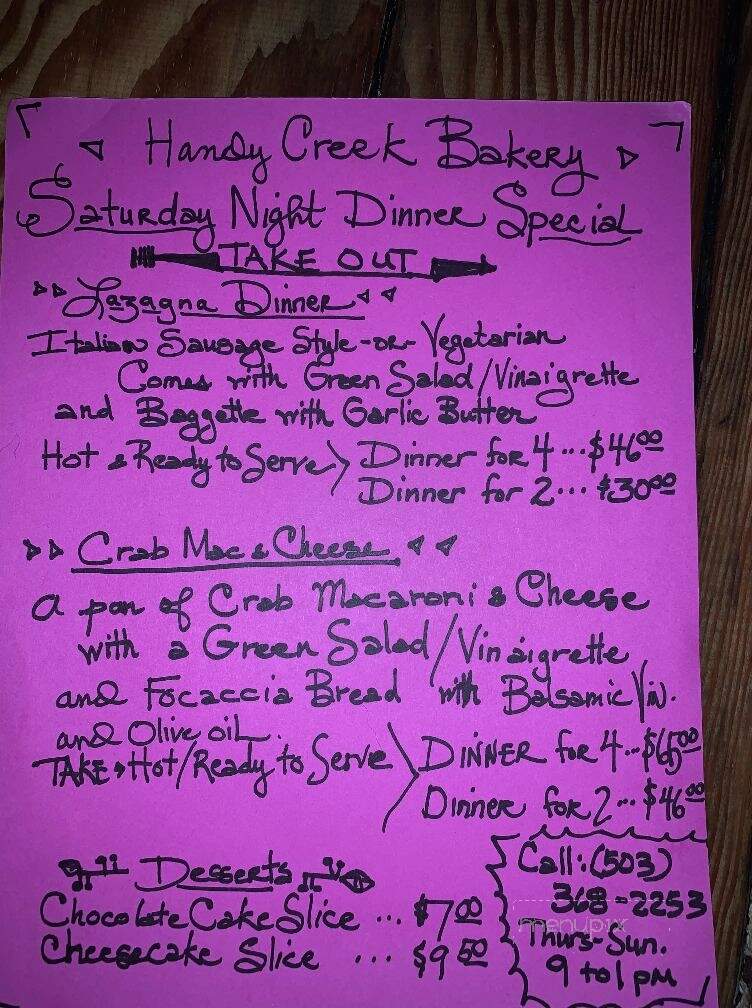 Handy Creek Bakery
Saturday Night Dinner Special
TAKE OUT
Lazagna Dinner
Italian Sausage Style -or- Vegetarian
Comes with Green Salad/Vinaigrette
and Baggette with Garlic Butter
Hot & Ready to Serve > Dinner for 4 ... $46.00
Dinner for 2 ... $30.00
Crab Mac & Cheese
A pan of Crab Macaroni & Cheese
with a Green Salad/Vinaigrette
and Focaccia Bread with Balsamic Vin.
and Olive oil.
TAKE → Hot/Ready to Serve > DINNER for 4 ... $65.00
Dinner for 2 ... $46.00
Desserts
Chocolate Cake Slice ... $7.00
Cheesecake Slice ... $9.50
Call: (503)
368-2253
Thurs-Sun.
9 to 1 pm
menupix